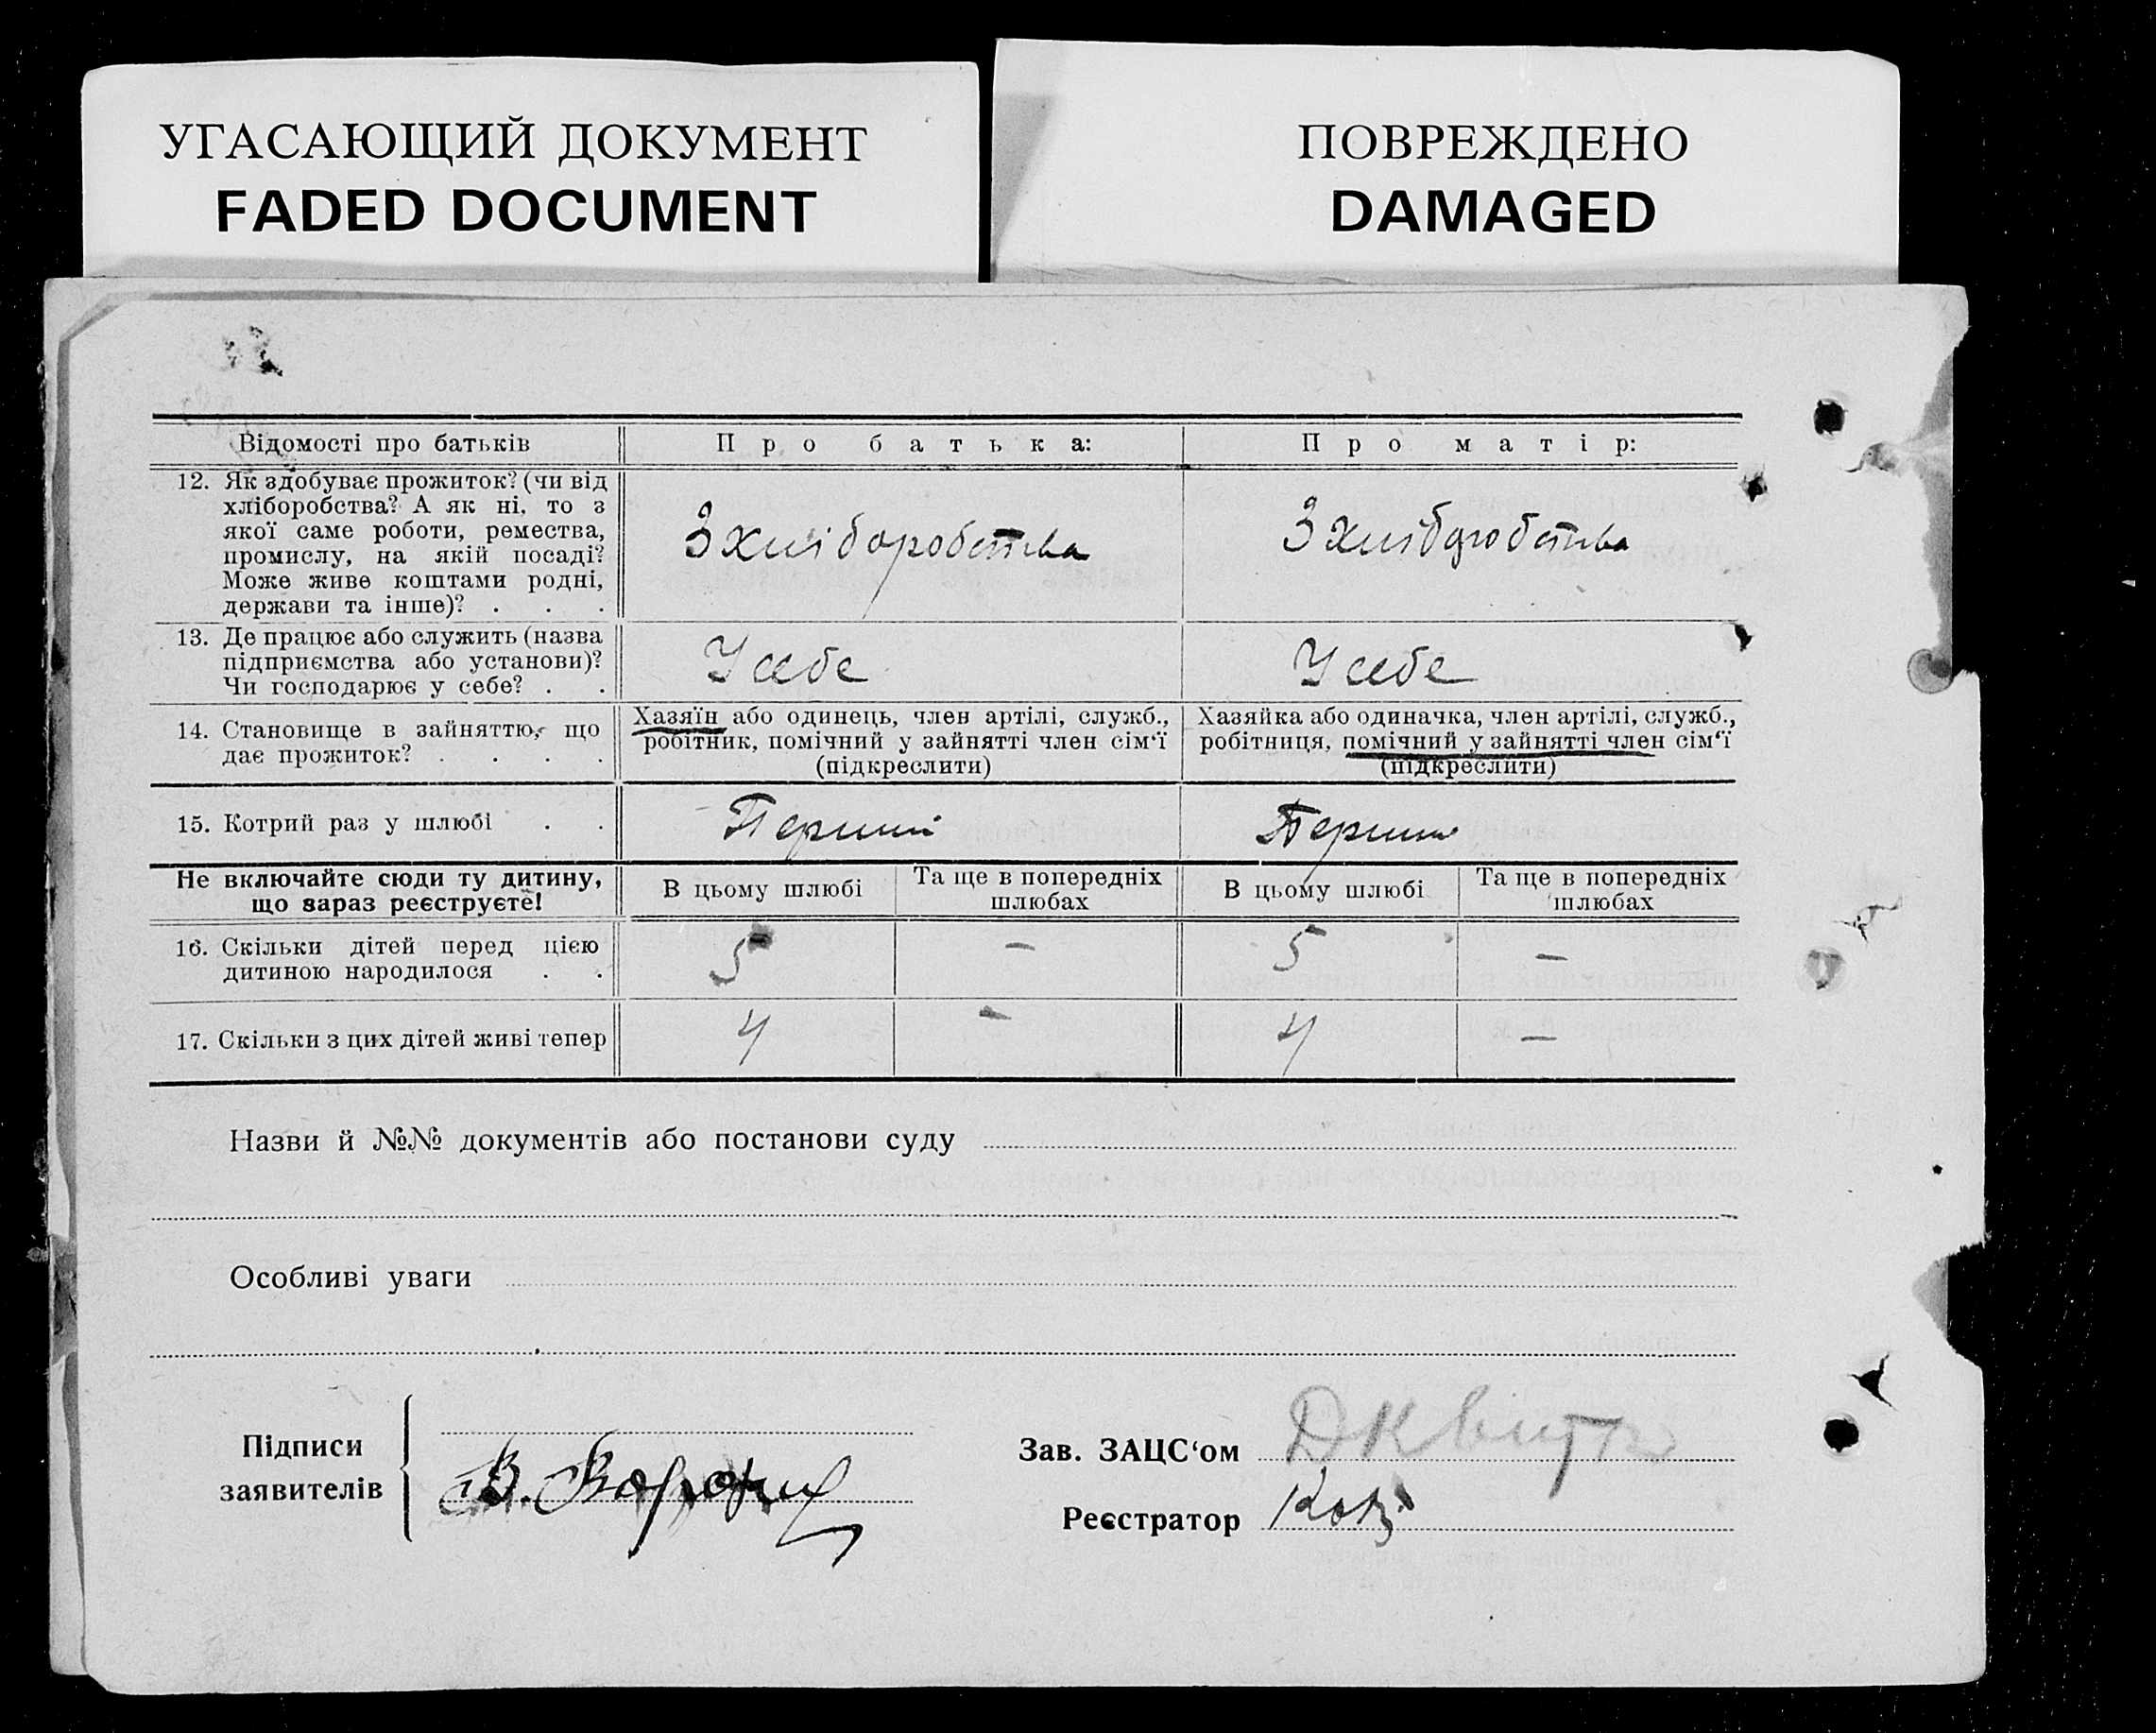 УГАСАЮЩИЙ ДОКУМЕНТ
FADED DOCUMENT
ПОВРЕЖДЕНО
DAMAGED
Відомості про батьків
Про батька:
Про матір:
12. Як здобуває прожиток? (чи від
хліборобства? А як ні, то з
якої саме роботи, ремества,
промислу, на якій посаді?
Може живе коштами родні,
держави та інше)? . . .
З хліборобства
З хліборобства
13. Де працює або служить (назва
підприємства або установи)?
Чи господарює у себе? . .
У себе
У себе
14. Становище в зайняттю, що
дає прожиток? . . . .
Хазяїн або одинець, член артілі, служб.,
робітник, помічний у зайнятті член сім‘ї
(підкреслити)
Хазяйка або одиначка, член артілі, служб.,
робітниця, помічний у зайнятті член сім‘ї
(підкреслити)
15. Котрий раз у шлюбі . .
Перший
Перший
Не включайте сюди ту дитину,
що зараз реєструєте!
В цьому шлюбі
Та ще в попередніх
шлюбах
В цьому шлюбі
Та ще в попередніх
шлюбах
16. Скільки дітей перед цією
дитиною народилося . .
5
—
5
—
17. Скільки з цих дітей живі тепер
4
—
4
—
Назви й №№ документів або постанови суду
Особливі уваги
Підписи
заявителів
В.
Зав. ЗАЦС‘ом
Реєстратор